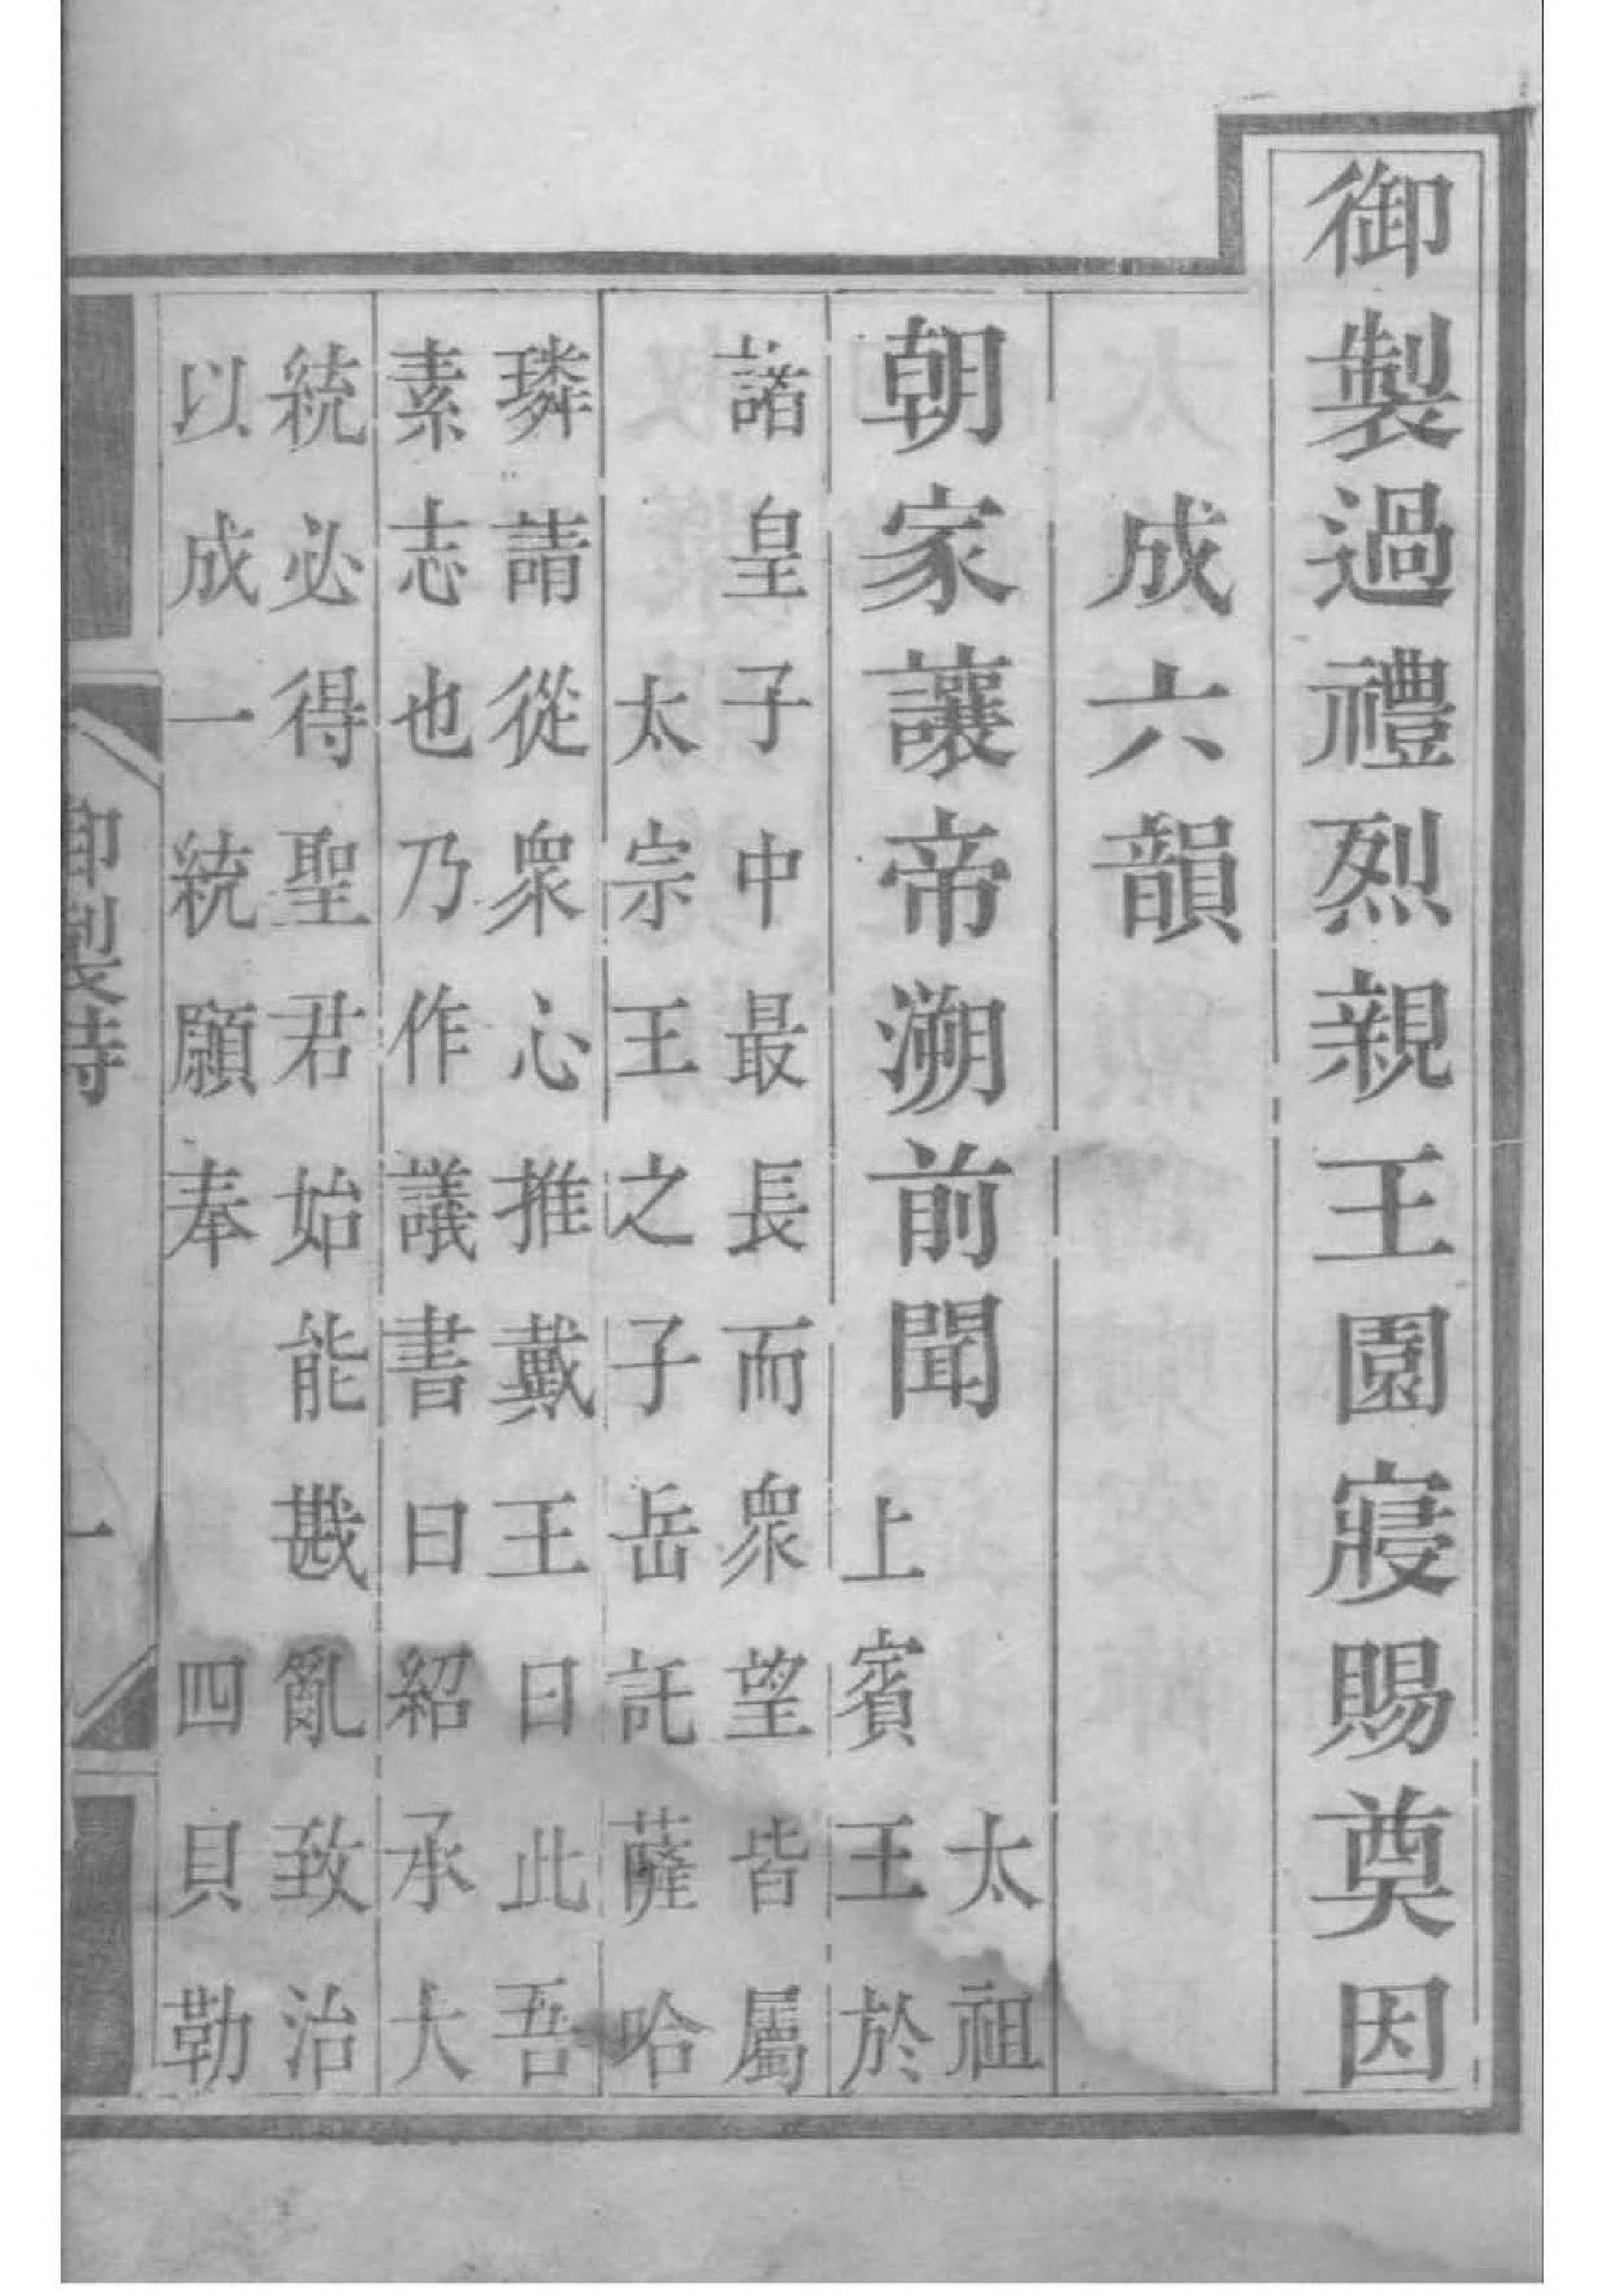 御製過禮烈親王園寢賜奠因
成六韻
朝家讓帝溯前聞
太祖
上賓王於
諸皇子中最長而衆望皆屬
太宗王之子岳託薩哈
璘請從衆心推戴王曰此吾
素志也乃作議書曰紹承大
統必得聖君始能戡亂致治
以成一統願奉四貝勒
御製詩
一